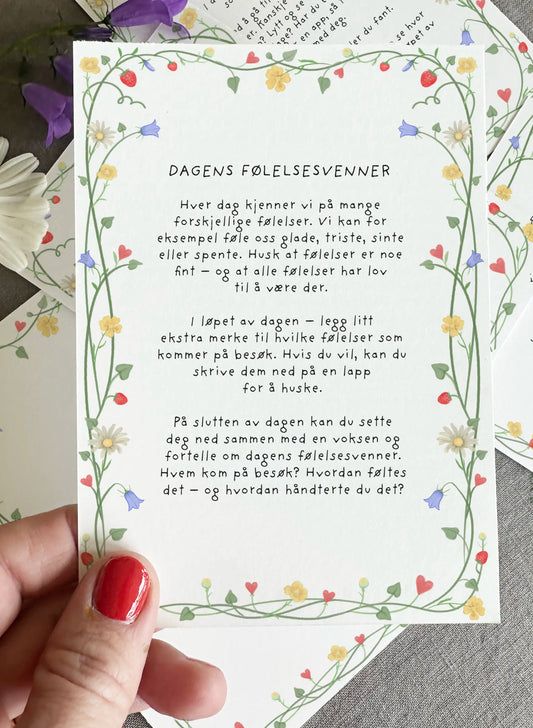 DAGENS FØLELSESVENNER
Hver dag kjenner vi på mange
forskjellige følelser. Vi kan for
eksempel føle oss glade, triste, sinte
eller spente. Husk at følelser er noe
fint – og at alle følelser har lov
til å være der.
I løpet av dagen – legg litt
ekstra merke til hvilke følelser som
kommer på besøk. Hvis du vil, kan du
skrive dem ned på en lapp
for å huske.
På slutten av dagen kan du sette
deg ned sammen med en voksen og
fortelle om dagens følelsesvenner.
Hvem kom på besøk? Hvordan føltes
det – og hvordan håndterte du det?